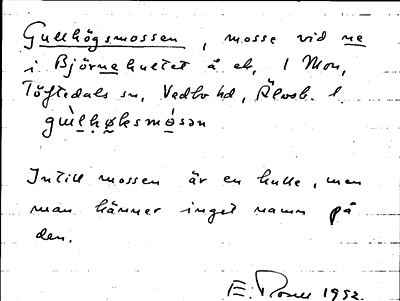 Gullhögsmossen, mosse vid ne
i Björnehultet å ek, 1 Mon,
Töftedals sn, Vedbo hd, Älvsb. l.
gul̀hø̣ksmósən
Intill mossen är en kulle, men
man känner inget namn på
den.
E. 1952.